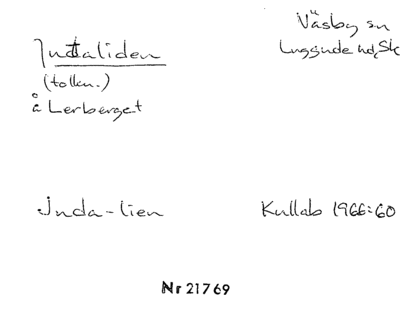 Väsby sn
Luggude hd, Sk
Juttaliden
(tolkn.)
å Lerberget
Juda-lien
Kullab 1966:60
Nr 21769